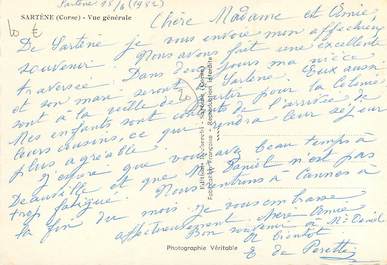 Sartène 15/6 (1952)
SARTÈNE (Corse) - Vue générale
10 €
Chère Madame et Amie,
De Sartène je vous envoie mon affectueux
souvenir. Nous avons fait une excellente
traversée. Dans deux jours ma nièce
et son mari seront à Sartène. Eux aussi
sont à la veille de partir pour la Colonie.
Mes enfants sont contents de l'arrivée de
leurs cousins, ce qui rendra leur séjour
plus agréable.
J'espère que vous avez beau temps à
Deauville et que Mr Daniel n'est pas
trop fatigué. Nous rentrons à Cannes à
la fin du mois. Je vous embrasse
affectueusement, chère Amie
Bon souvenir à Mr Daniel
A bientôt
E de Peretti
Photographie Véritable